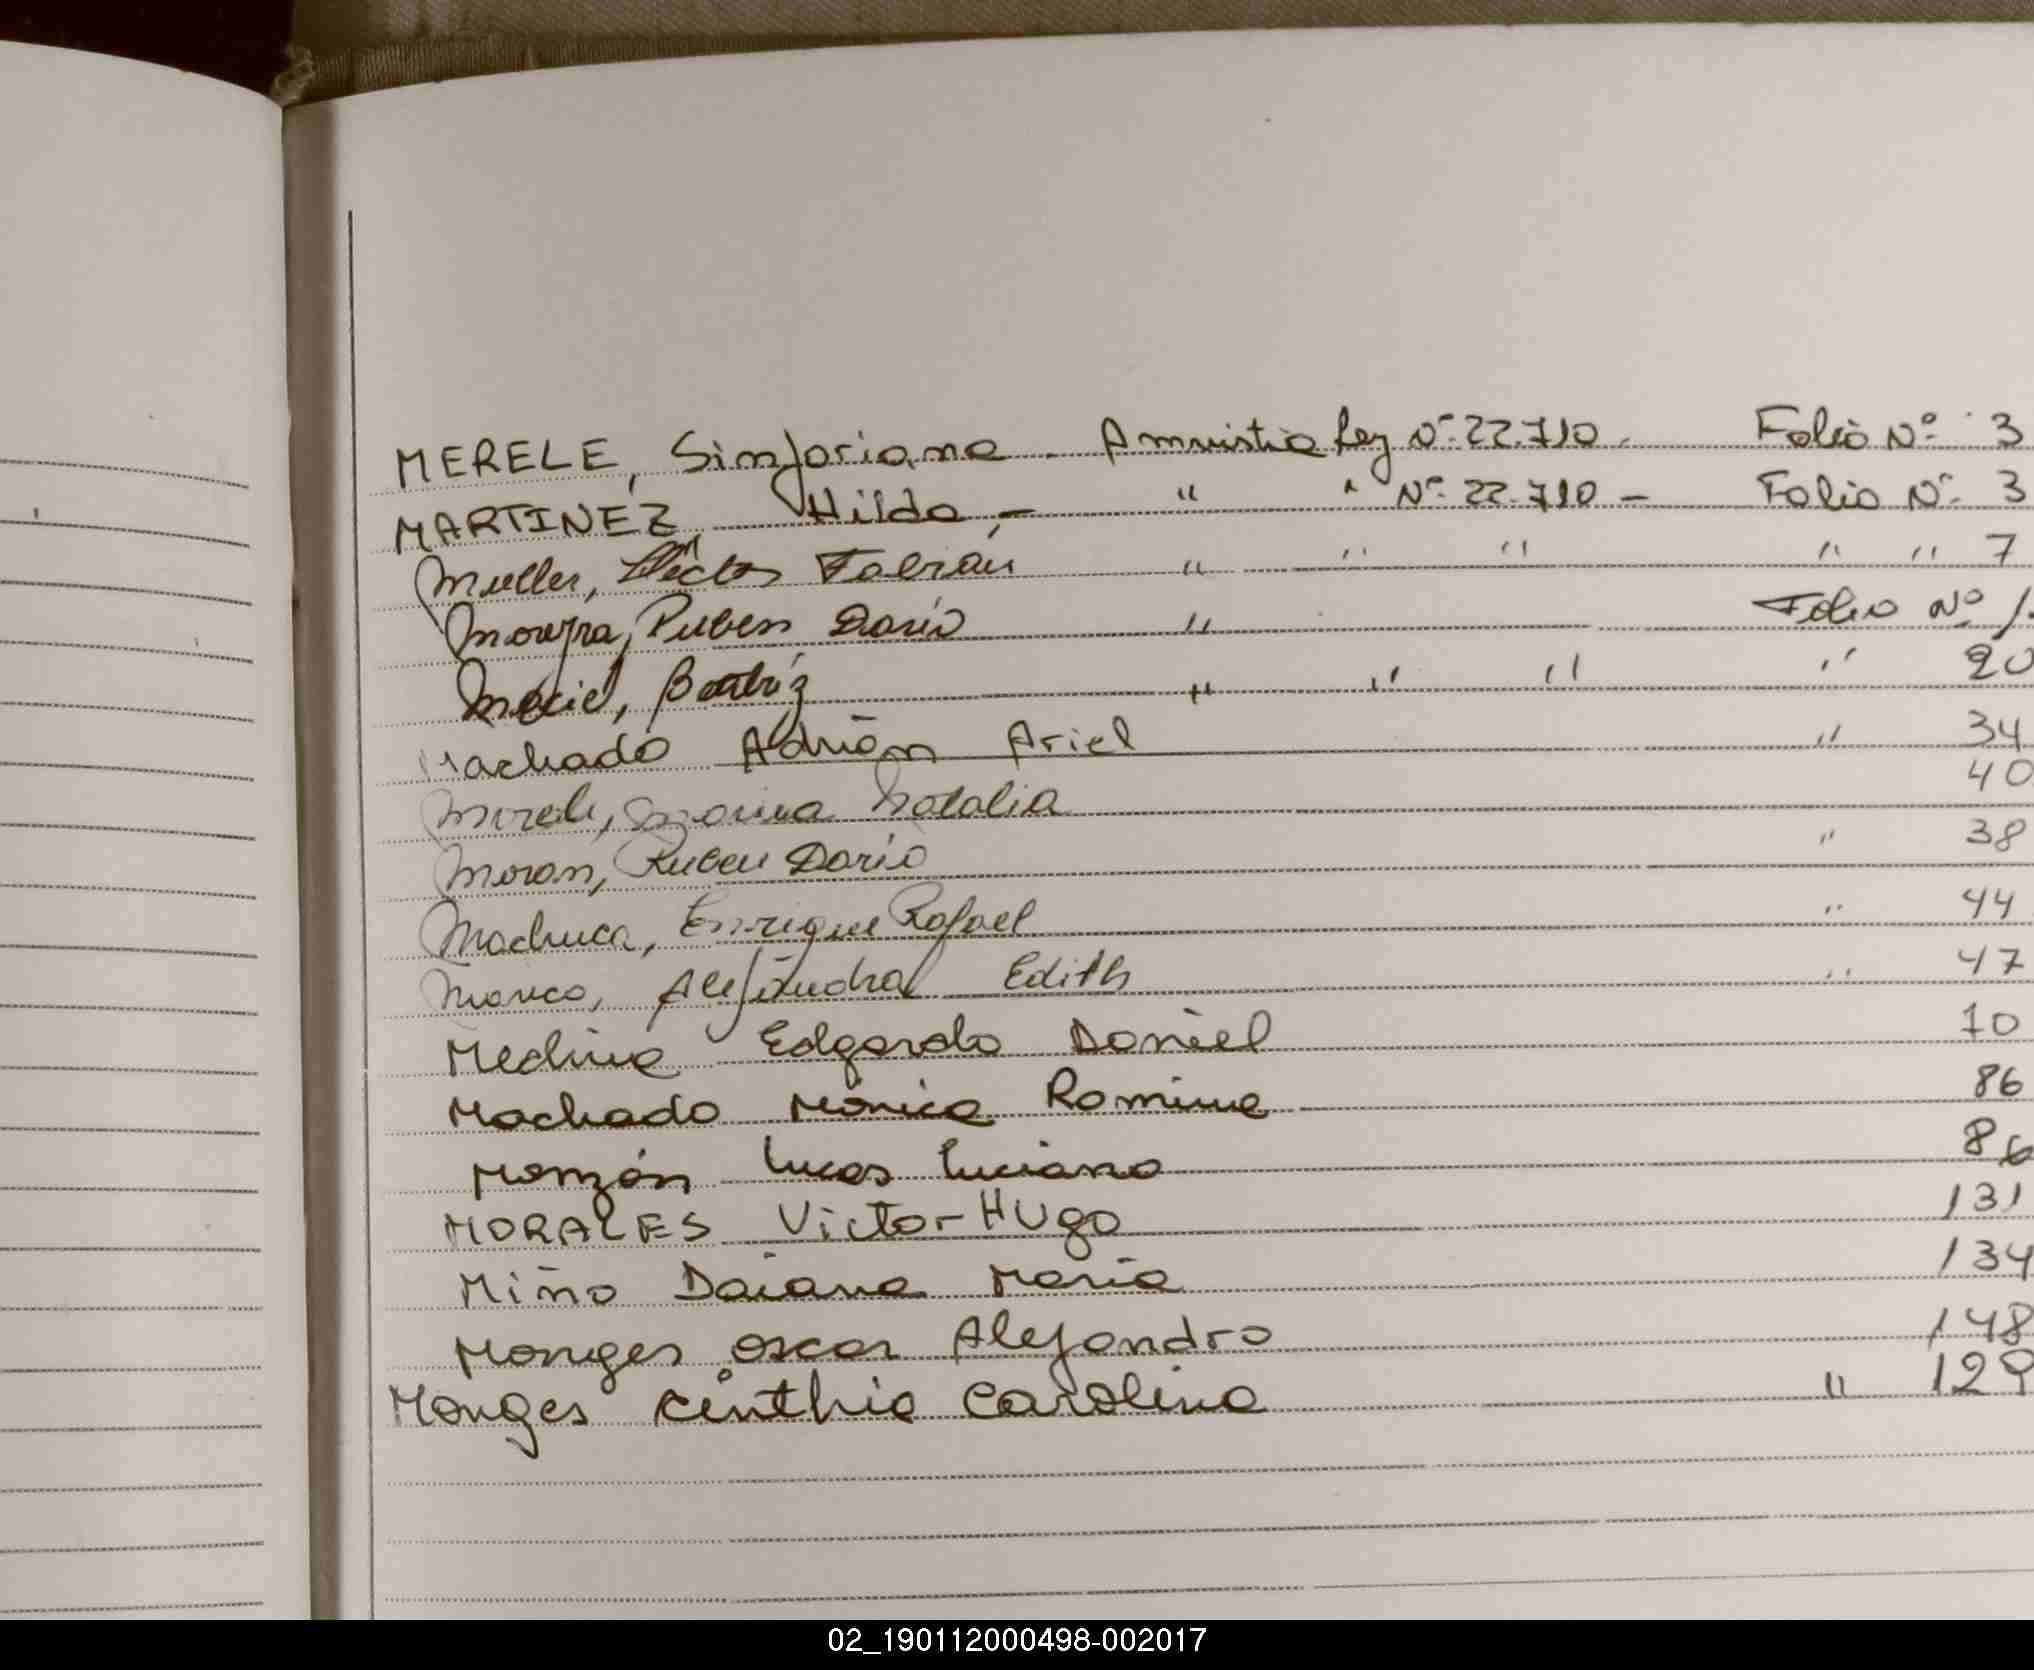 MERELE, Sinforiana - Amnistia Ley Nº 22.710. Folio Nº 3
MARTINEZ Hilda, - " " Nº 22.710 - Folio Nº 3
Muller, Héctor Fabián " " " " " 7
Moreyra, Ruben Dario " Folio Nº 1
Maciel, Beatriz " " " " 20
Machado Adrián Ariel " 34
Marina Natalia 40
Moran, Ruben Dario " 38
Machuca, Enrique Rafael " 44
Alejandra Edith " 47
Medina Edgardo Daniel 70
Machado Mónica Romina 86
Monzón Lucas Luciano 86
MORALES Victor Hugo 131
Miño Daiana Maria 134
Monges Oscar Alejandro 148
Monges Cinthia Carolina " 129
02_190112000498-002017